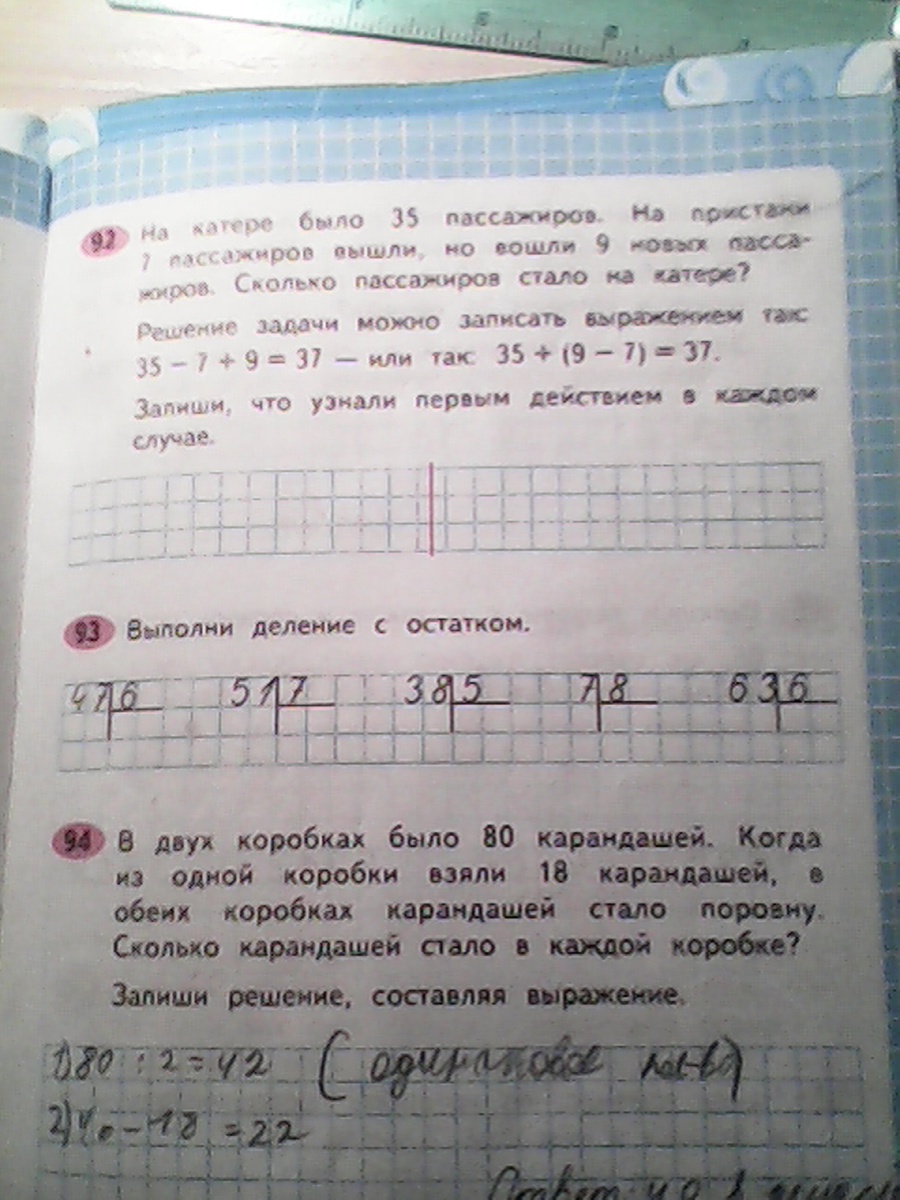 92 На катере было 35 пассажиров. На пристани
7 пассажиров вышли, но вошли 9 новых пасса-
жиров. Сколько пассажиров стало на катере?
Решение задачи можно записать выражением так:
35 − 7 + 9 = 37 — или так: 35 + (9 − 7) = 37.
Запиши, что узнали первым действием в каждом
случае.
93 Выполни деление с остатком.
47 6 51 7 38 5 7 8 63 6
94 В двух коробках было 80 карандашей. Когда
из одной коробки взяли 18 карандашей, в
обеих коробках карандашей стало поровну.
Сколько карандашей стало в каждой коробке?
Запиши решение, составляя выражение.
1) 80 : 2 = 42 (одинаковое кол-во)
2) 40 − 18 = 22
Ответ